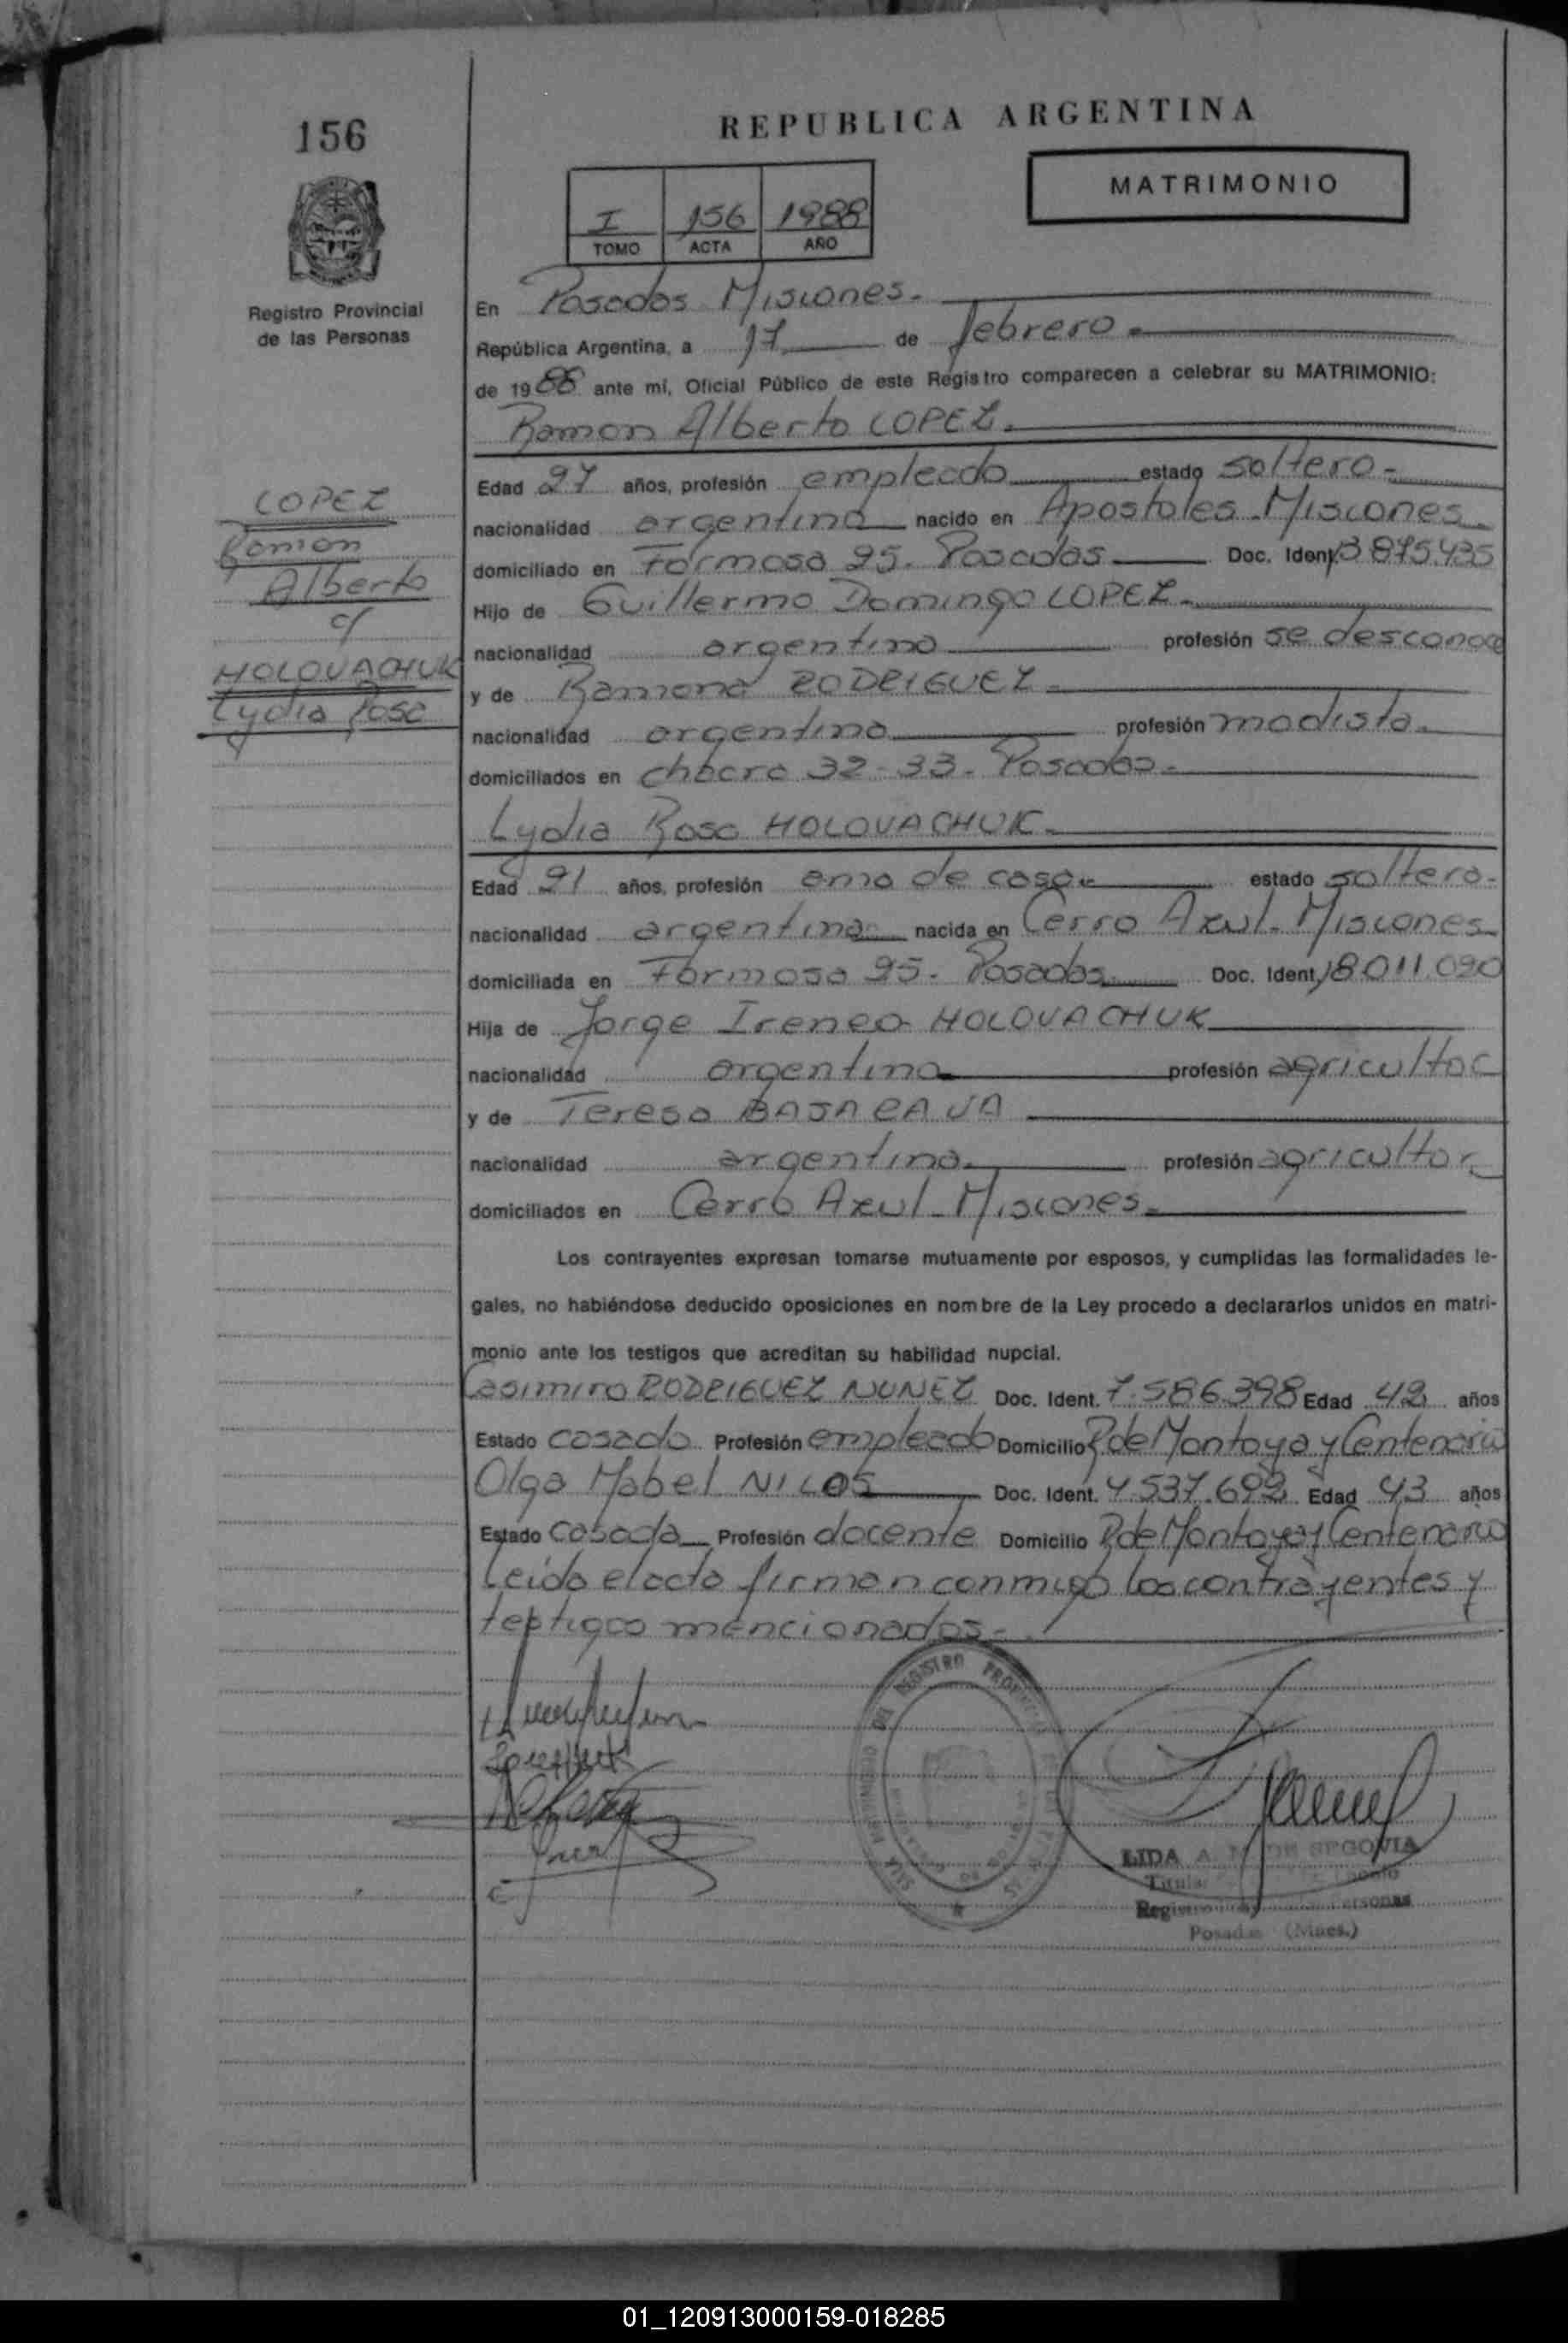 156
REPUBLICA ARGENTINA
MATRIMONIO
I 156 1988
TOMO ACTA AÑO
Registro Provincial
de las Personas
En Posadas Misiones.
República Argentina, a 17 de febrero
de 1988 ante mí, Oficial Público de este Registro comparecen a celebrar su MATRIMONIO:
Ramon Alberto LOPEZ.
Edad 27 años, profesión empleado estado soltero
nacionalidad argentina nacido en Apostoles Misiones
domiciliado en Formosa 95. Posadas Doc. Ident. 13.875.435
Hijo de Guillermo Domingo LOPEZ
nacionalidad argentina profesión se desconoce
y de Ramona RODRIGUEZ
nacionalidad argentina profesión modista
domiciliados en chacra 32-33. Posadas
LOPEZ
Ramon
Alberto
c/
HOLOVACHUK
Lydia Rosa
Lydia Rosa HOLOVACHUK
Edad 21 años, profesión ama de casa estado soltera
nacionalidad argentina nacida en Cerro Azul. Misiones
domiciliada en Formosa 95. Posadas Doc. Ident. 18.011.090
Hija de Jorge Ireneo HOLOVACHUK
nacionalidad argentina profesión agricultor
y de Teresa
nacionalidad argentina profesión agricultor
domiciliados en Cerro Azul Misiones
Los contrayentes expresan tomarse mutuamente por esposos, y cumplidas las formalidades le-
gales, no habiéndose deducido oposiciones en nombre de la Ley procedo a declararlos unidos en matri-
monio ante los testigos que acreditan su habilidad nupcial.
Casimiro RODRIGUEZ NUNEZ Doc. Ident. 7.586.398 Edad 42 años
Estado casado Profesión empleado Domicilio R de Montoya y Centenario
Olga Mabel Doc. Ident. 4.537.692 Edad 43 años
Estado casada Profesión docente Domicilio R de Montoya y Centenario
Leida el acta firman conmigo los contrayentes y
testigos mencionados
REGISTRO
LIDA A. DE SEGOVIA
Titular
Personas
Posadas (Mnes.)
01_120913000159-018285